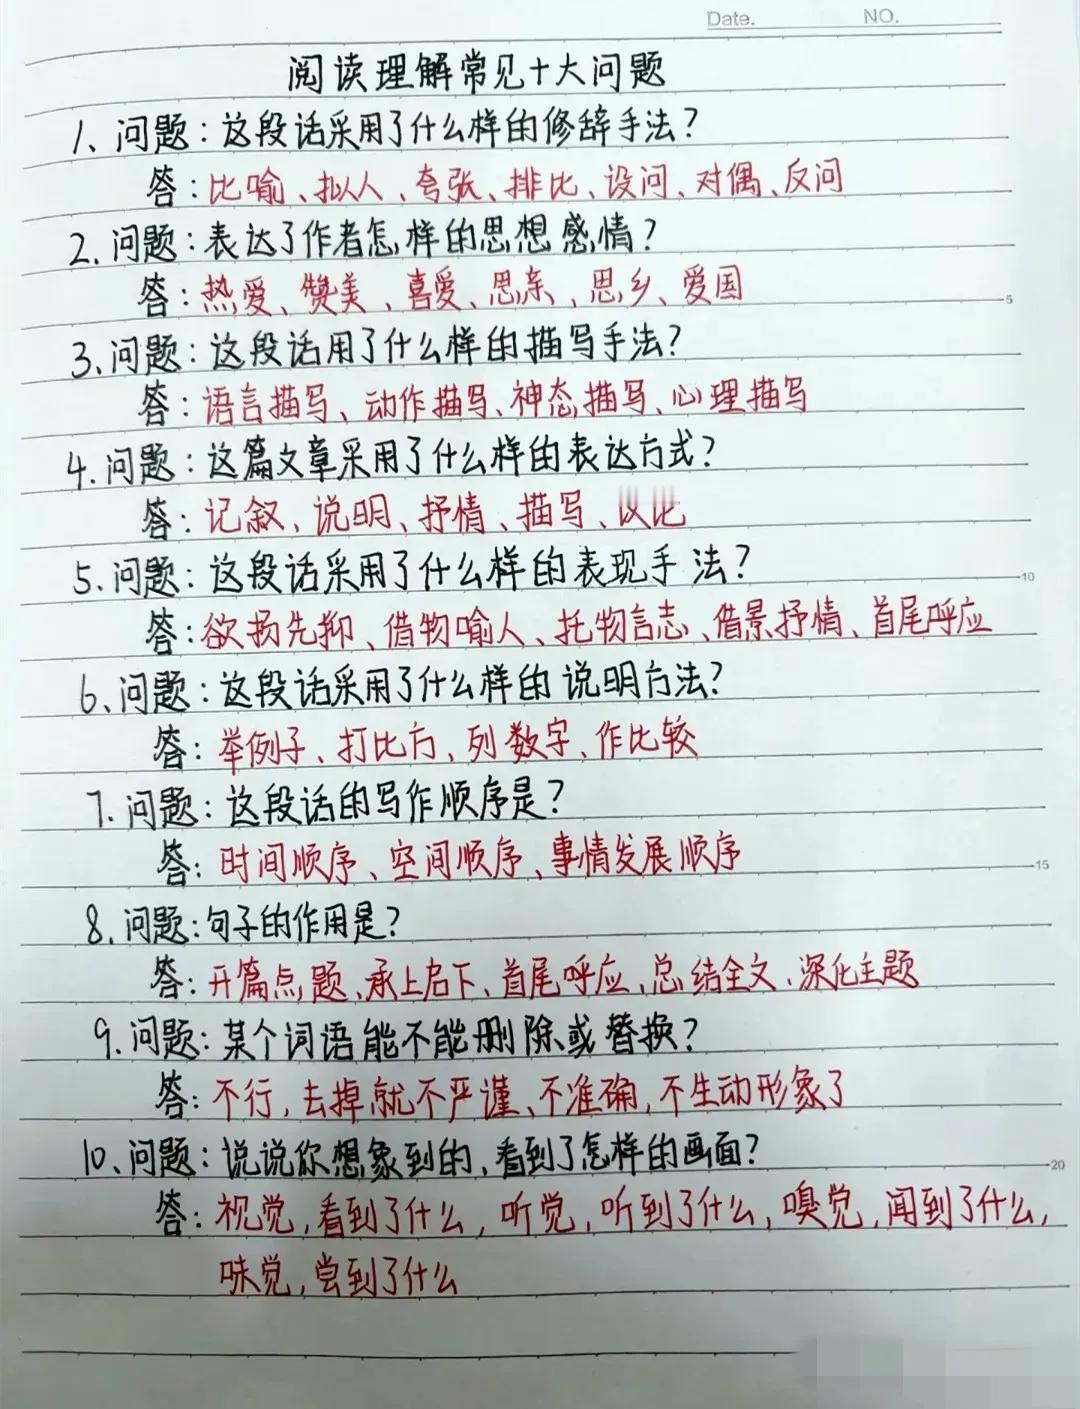 Date. NO.
阅读理解常见十大问题
1、问题：这段话采用了什么样的修辞手法？
答：比喻、拟人、夸张、排比、设问、对偶、反问
2、问题：表达了作者怎样的思想感情？
答：热爱、赞美、喜爱、思亲、思乡、爱国
5
3、问题：这段话用了什么样的描写手法？
答：语言描写、动作描写、神态描写、心理描写
4、问题：这篇文章采用了什么样的表达方式？
答：记叙、说明、抒情、描写、议论
5、问题：这段话采用了什么样的表现手法？
10
答：欲扬先抑、借物喻人、托物言志、借景抒情、首尾呼应
6、问题：这段话采用了什么样的说明方法？
答：举例子、打比方、列数字、作比较
7、问题：这段话的写作顺序是？
答：时间顺序、空间顺序、事情发展顺序
15
8、问题：句子的作用是？
答：开篇点题、承上启下、首尾呼应、总结全文、深化主题
9、问题：某个词语能不能删除或替换？
答：不行，去掉就不严谨、不准确，不生动形象了
10、问题：说说你想象到的，看到了怎样的画面？
20
答：视觉，看到了什么，听觉，听到了什么，嗅觉，闻到了什么，
味觉，尝到了什么